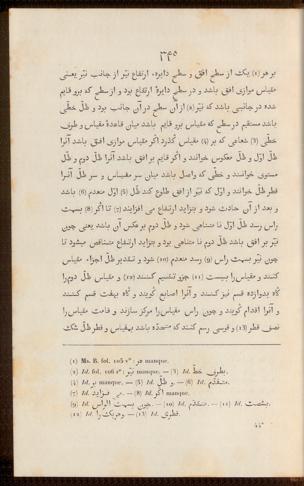 ٣٤٥
بر هر (1) یک از سطح افق و سطح دایرهٔ ارتفاع نیّر از جانب نیّر یعنی
مقیاس موازی افق باشد و در سطح دایرهٔ ارتفاع بود و از سطحی که برو قایم
شده در جانبی باشد که نیّر (2) از آن سطح در آن جانب بود و ظلّ خطّی
باشد مستقیم در سطحی که مقیاس برو قایم باشد میان قاعدهٔ مقیاس و طرف
خطّی (3) شعاعی که بر (4) مقیاس گذرد اگر مقیاس موازی افق باشد آنرا
ظلّ اوّل و ظلّ معکوس خوانند و اگر قایم بر افق باشد آنرا ظلّ دوم و ظلّ
مستوی خوانند و خطّی که واصل باشد میان سر مقیاس و سر ظلّ آنرا
قطر ظلّ خوانند و اوّل که نیّر از افق طلوع کند ظلّ (5) اوّل منعدم (6) باشد
و بعد از آن حادث شود و بتزاید ارتفاع می افزاید (7) تا اگر (8) بسمت
راس رسد ظلّ اوّل نا متناهی شود و ظلّ دوم بر عکس آن باشد یعنی چون
نیّر بر افق باشد ظلّ دوم نا متناهی بود و بتزاید ارتفاع متناقص میشود تا
چون نیّر بسمت راس (9) رسد منعدم (10) شود و تقدیر ظلّ اجزاء مقیاس
کنند و مقیاس را ببیست (11) جزو تقسیم کنند (12) و مقیاس ظلّ دوم را
گاه بدوازده قسم نیز کنند و آنرا اصابع گویند و گاه بهفت قسم کنند
و آنرا اقدام گویند و چون راس مقیاس را مرکز سازند و قامت مقیاس را
نصف قطر (13) و قوسی رسم کنند که محدّد باشد بمقیاس و قطر ظلّ شک
(1) Ms. B. fol. 105 v° هر manque.
(2) Id. fol. 106 r° نیّر manque. — (3) Id. بطرف خطّ.
(4) Id. بر manque. — (5) Id. و ظلّ. — (6) Id. متقدّم.
(7) Id. می فزاید. — (8) Id. اگر manque.
(9) Id. چون بسمت الراس. — (10) Id. متقدّم. — (11) Id. بشصت.
(12) Id. — (13) Id. قطری.
44*